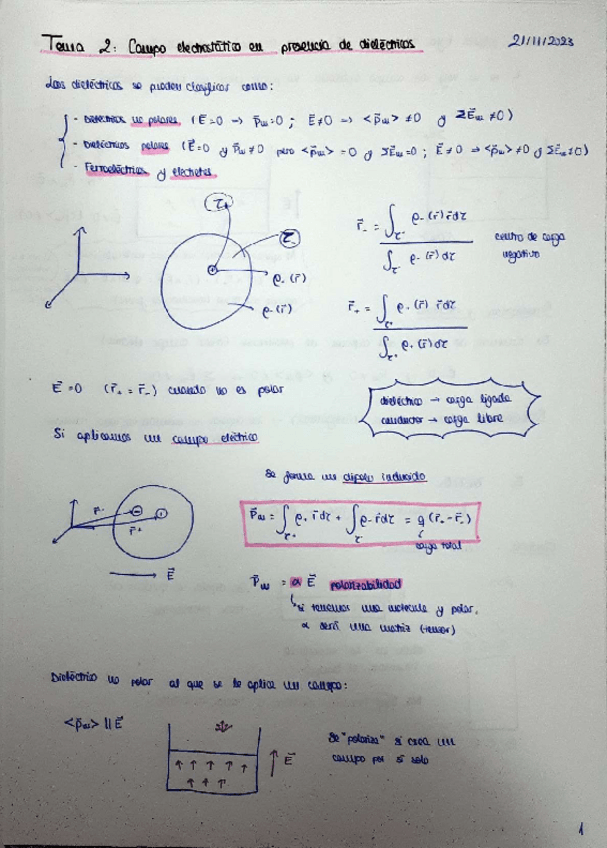 Tema 2: Campo electrostático en presencia de dieléctricos 21/11/2023
Los dieléctricos se pueden clasificar como:
- Dieléctricos no polares (E⃗=0 → p⃗m=0 ; E≠0 → <p⃗m> ≠0 y ΣE⃗m ≠0)
- Dieléctricos polares (E⃗=0 y p⃗m≠0 pero <p⃗m> =0 y ΣE⃗m=0 ; E⃗ ≠0 ⇒ <p⃗m>≠0 y ΣE⃗m≠0)
- Ferroeléctricos y electretes
τ+
τ-
ρ+(r⃗)
ρ-(r⃗)
r⃗- = ∫τ- ρ-(r⃗) r⃗dτ / ∫τ- ρ-(r⃗)dτ centro de carga negativo
r⃗+ = ∫τ+ ρ+(r⃗) r⃗dτ / ∫τ+ ρ+(r⃗)dτ
E⃗=0 (r⃗+ = r⃗-) cuando no es polar
dieléctrico → carga ligada
conductor → carga libre
Si aplicamos un campo eléctrico
Se forma un dipolo inducido
r⃗- - +
r⃗+
E⃗
p⃗m = ∫τ+ ρ+ r⃗dτ + ∫τ- ρ- r⃗dτ = q (r⃗+ - r⃗-)
carga total
p⃗m = α E⃗ polarizabilidad
si tenemos una molécula y polar,
α será una matriz (tensor)
Dieléctrico no polar al que se le aplica un campo:
<p⃗m> || E⃗
E⃗
Se "polariza" si crea un
campo por si solo
1